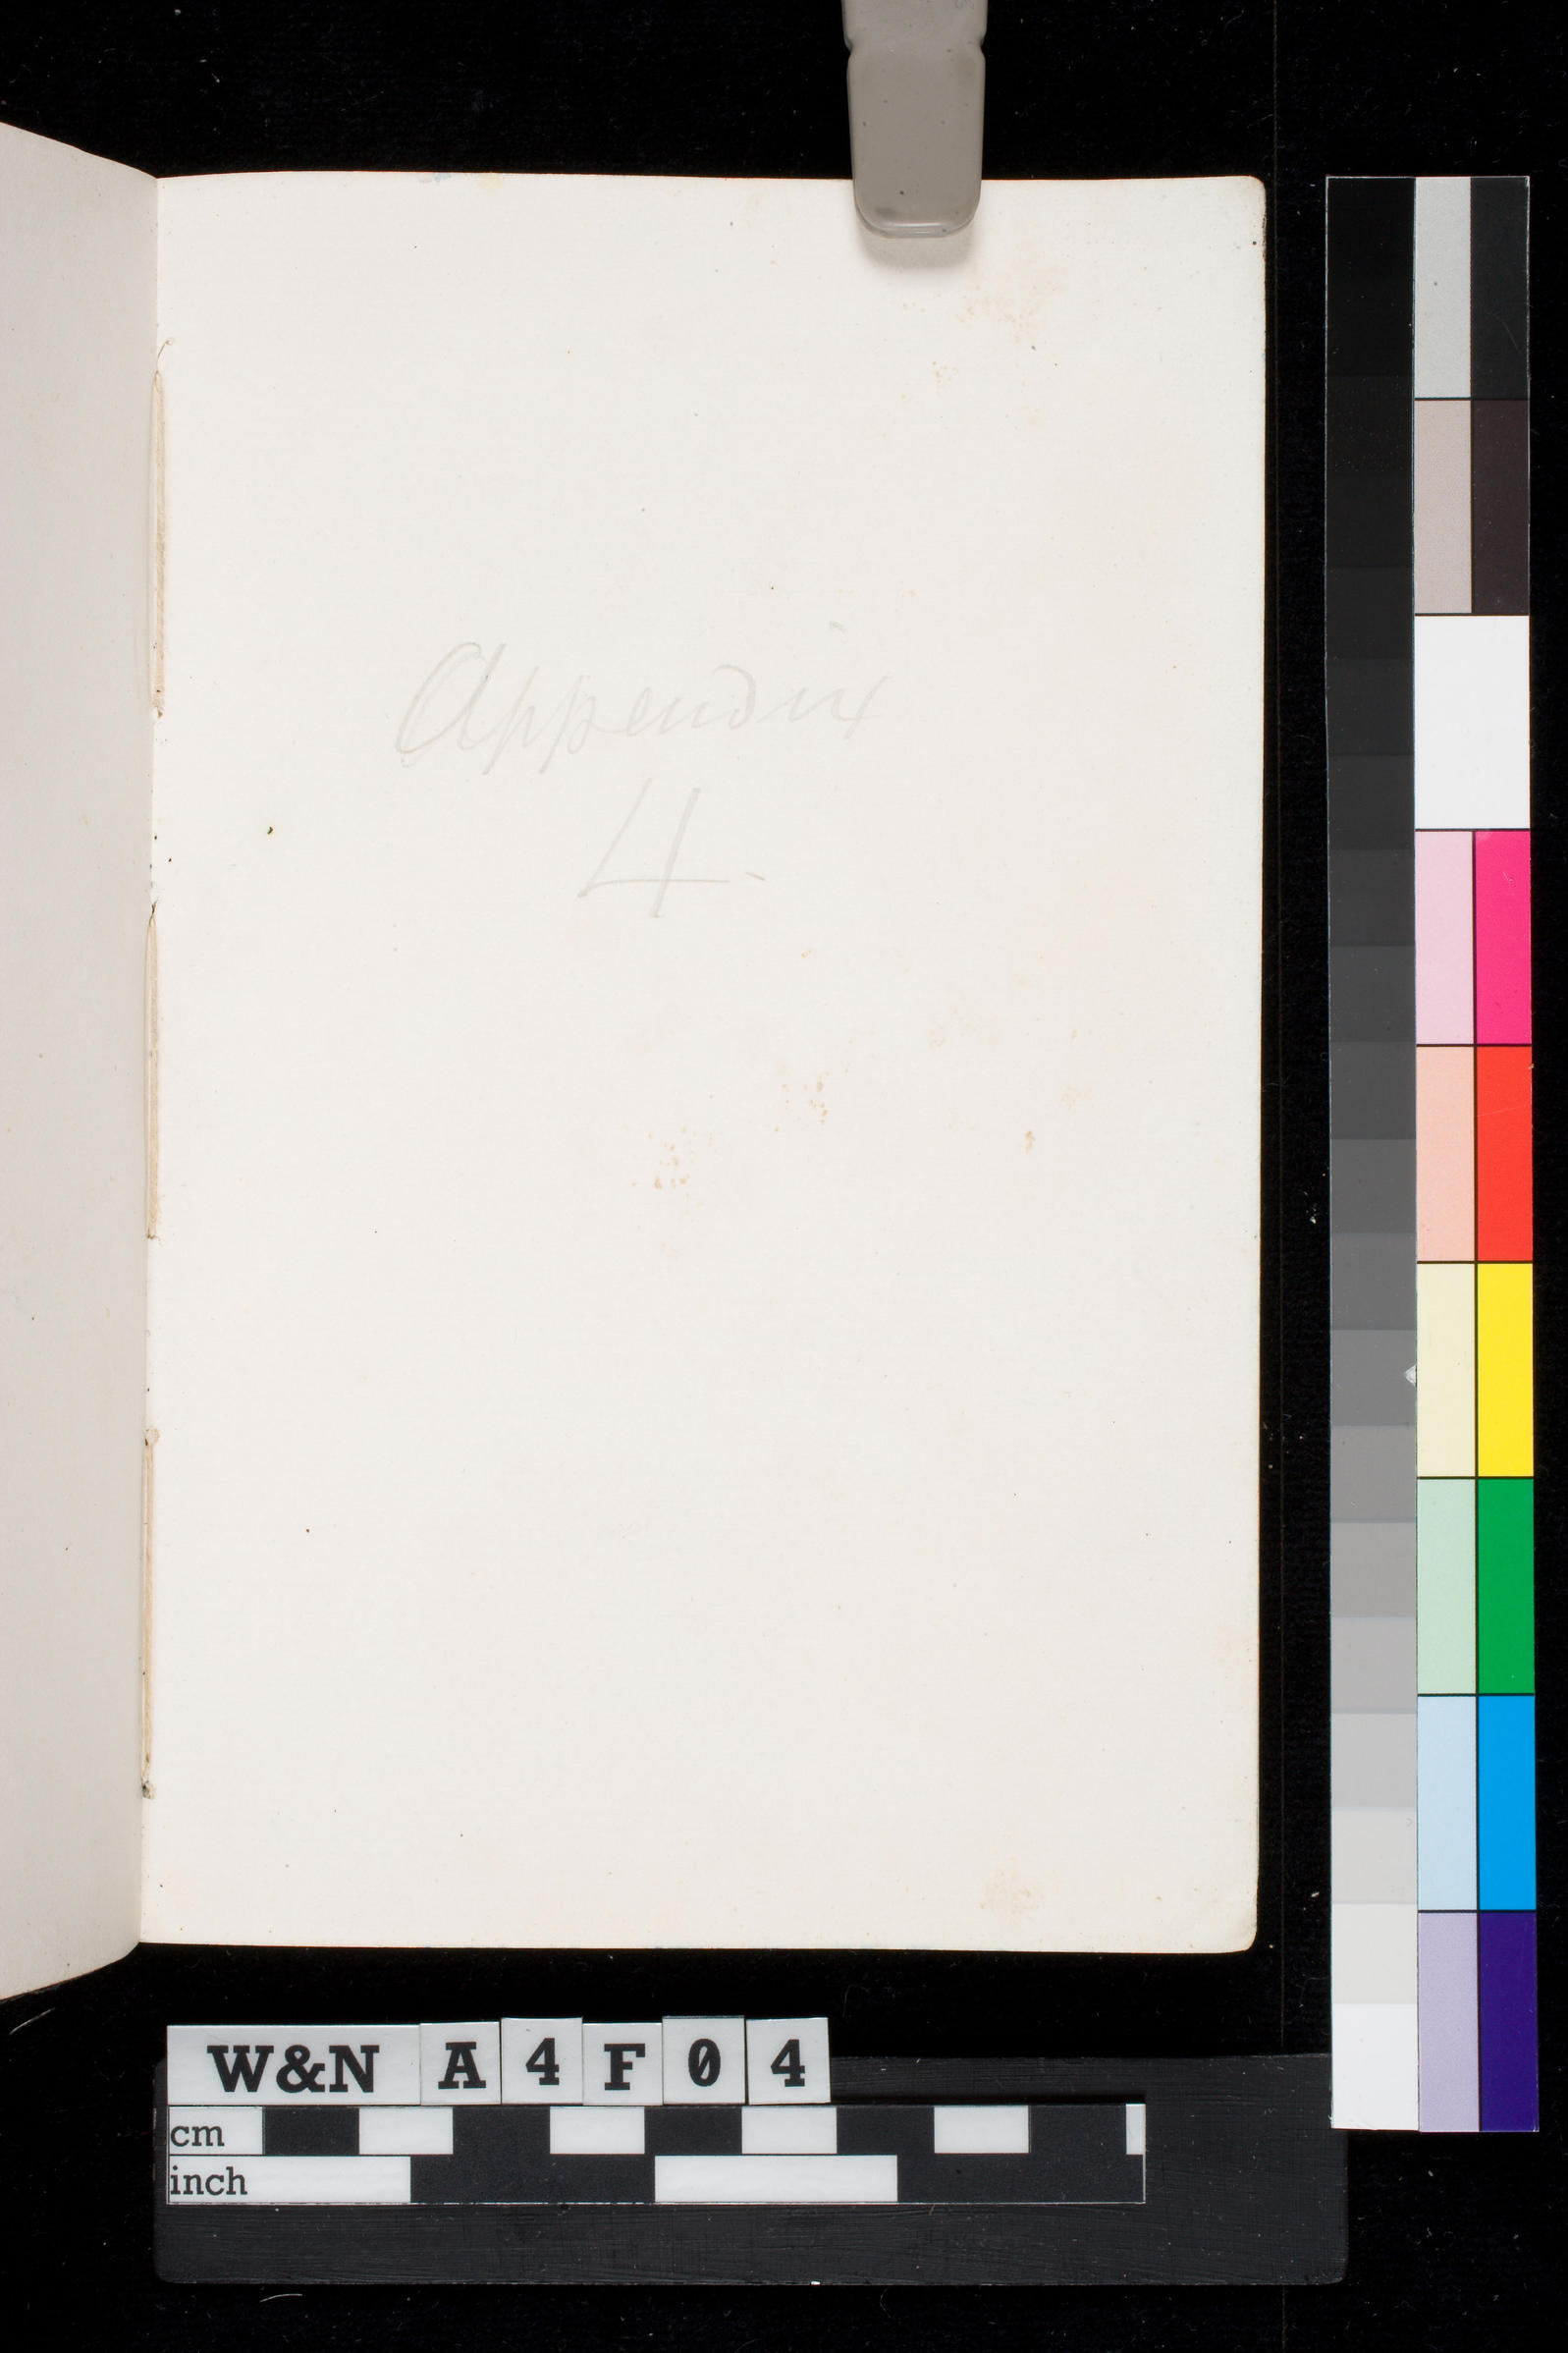 Appendix
4.
W&N A 4 F 0 4
cm
inch